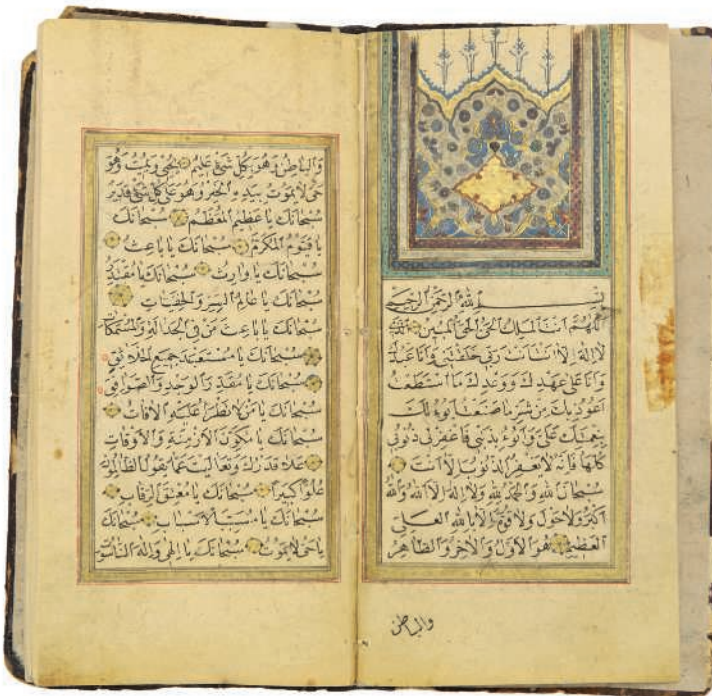 بسم الله الرحمن الرحيم
اللهم انت الملك الحي الحق المبين الذي
لا اله الا انت انت ربي خلقتني وانا عبدك
وانا على عهدك ووعدك ما استطعت
اعوذ بك من شر ما صنعت ابوء لك
بنعمتك علي وابوء بذنبي فاغفر لي ذنوبي
كلها فانه لا يغفر الذنوب الا انت
سبحان الله والحمد لله ولا اله الا الله والله
اكبر ولا حول ولا قوة الا بالله العلي
العظيم هو الاول والاخر والظاهر
والباطن
والباطن وهو بكل شئ عليم يحيي ويميت وهو
حي لا يموت بيده الخير وهو على كل شئ قدير
سبحانك يا عظيم المعظم سبحانك
يا قيوم المكرم سبحانك يا باعث
سبحانك يا وارث سبحانك يا مقتدر
سبحانك يا عالم السر والخفيات
سبحانك يا باعث من في
سبحانك يا مستعبد جميع الخلائق
سبحانك يا مقدر الوجد والصوافق
سبحانك يا من لا تطرأ عليه الافات
سبحانك يا مكون الازمنة والاوقات
علا قدرك وتعاليت عما يقول الظالمون
علوا كبيرا سبحانك يا معتق الرقاب
سبحانك يا مسبب الاسباب سبحانك
يا حي لا يموت سبحانك يا الهي واله الناس